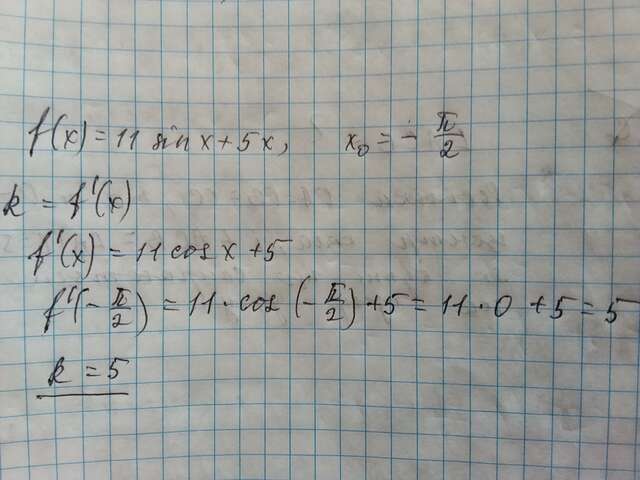 f(x) = 11 sin x + 5x, x₀ = - π/2
k = f'(x)
f'(x) = 11 cos x + 5
f'(- π/2) = 11 · cos (- π/2) + 5 = 11 · 0 + 5 = 5
k = 5